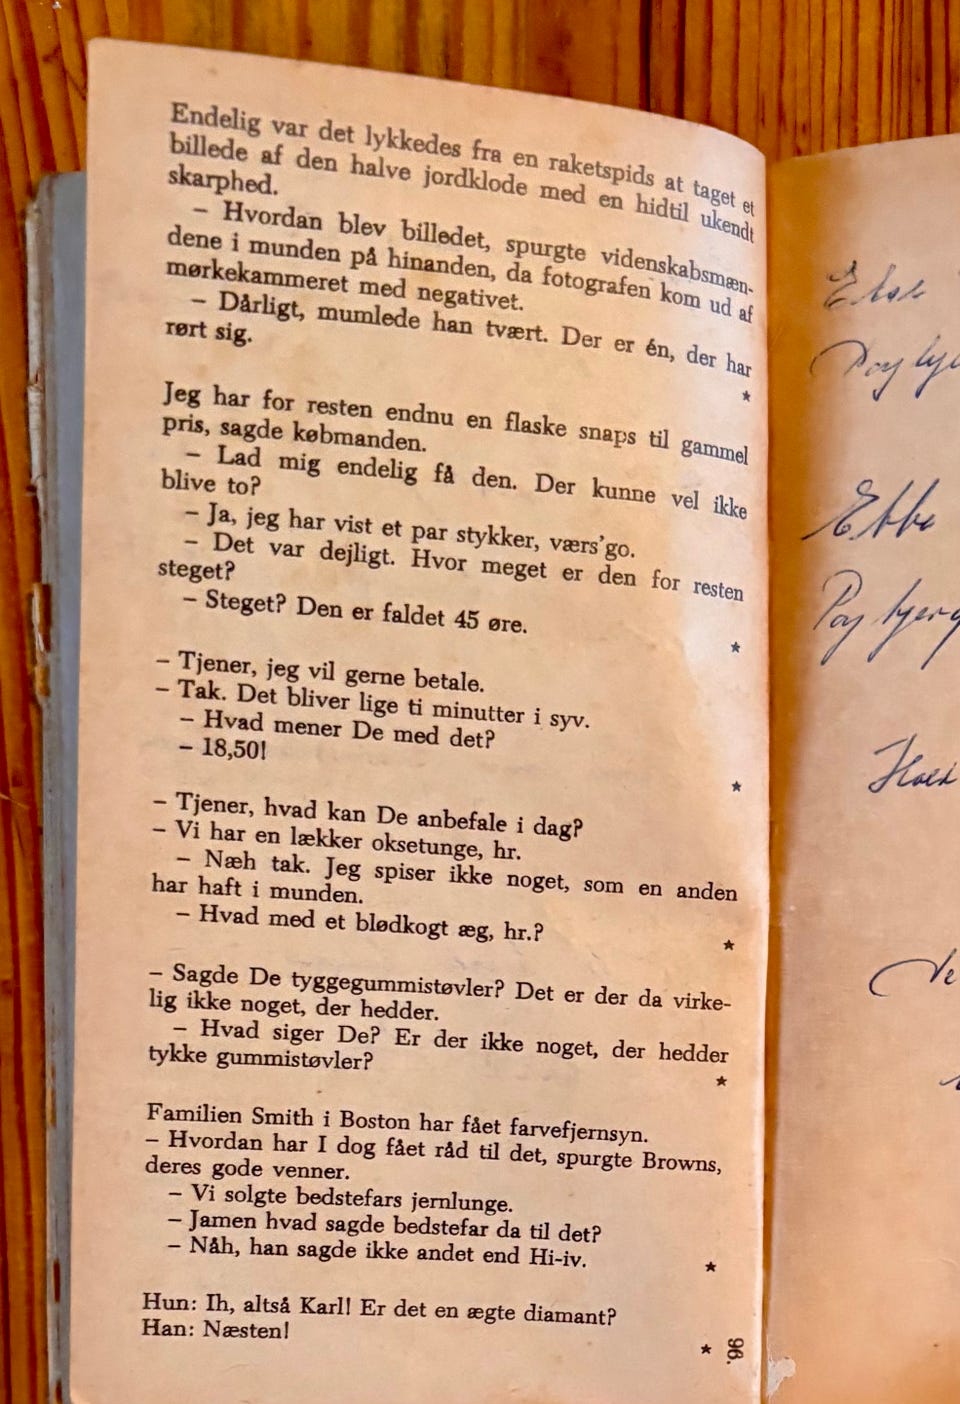 Endelig var det lykkedes fra en raketspids at taget et
billede af den halve jordklode med en hidtil ukendt
skarphed.
– Hvordan blev billedet, spurgte videnskabsmæn-
dene i munden på hinanden, da fotografen kom ud af
mørkekammeret med negativet.
– Dårligt, mumlede han tvært. Der er én, der har
rørt sig.
*
Jeg har for resten endnu en flaske snaps til gammel
pris, sagde købmanden.
– Lad mig endelig få den. Der kunne vel ikke
blive to?
– Ja, jeg har vist et par stykker, værs'go.
– Det var dejligt. Hvor meget er den for resten
steget?
– Steget? Den er faldet 45 øre.
*
– Tjener, jeg vil gerne betale.
– Tak. Det bliver lige ti minutter i syv.
– Hvad mener De med det?
– 18,50!
*
– Tjener, hvad kan De anbefale i dag?
– Vi har en lækker oksetunge, hr.
– Næh tak. Jeg spiser ikke noget, som en anden
har haft i munden.
– Hvad med et blødkogt æg, hr.?
*
– Sagde De tyggegummistøvler? Det er der da virke-
lig ikke noget, der hedder.
– Hvad siger De? Er der ikke noget, der hedder
tykke gummistøvler?
*
Familien Smith i Boston har fået farvefjernsyn.
– Hvordan har I dog fået råd til det, spurgte Browns,
deres gode venner.
– Vi solgte bedstefars jernlunge.
– Jamen hvad sagde bedstefar da til det?
– Nåh, han sagde ikke andet end Hi-iv.
*
Hun: Ih, altså Karl! Er det en ægte diamant?
Han: Næsten!
*
96.
Ebbe